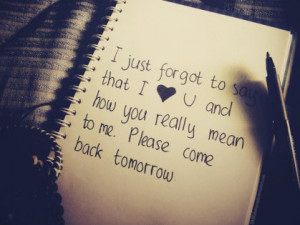 I just forgot to say
that I ♥ U and
how you really mean
to me. Please come
back tomorrow